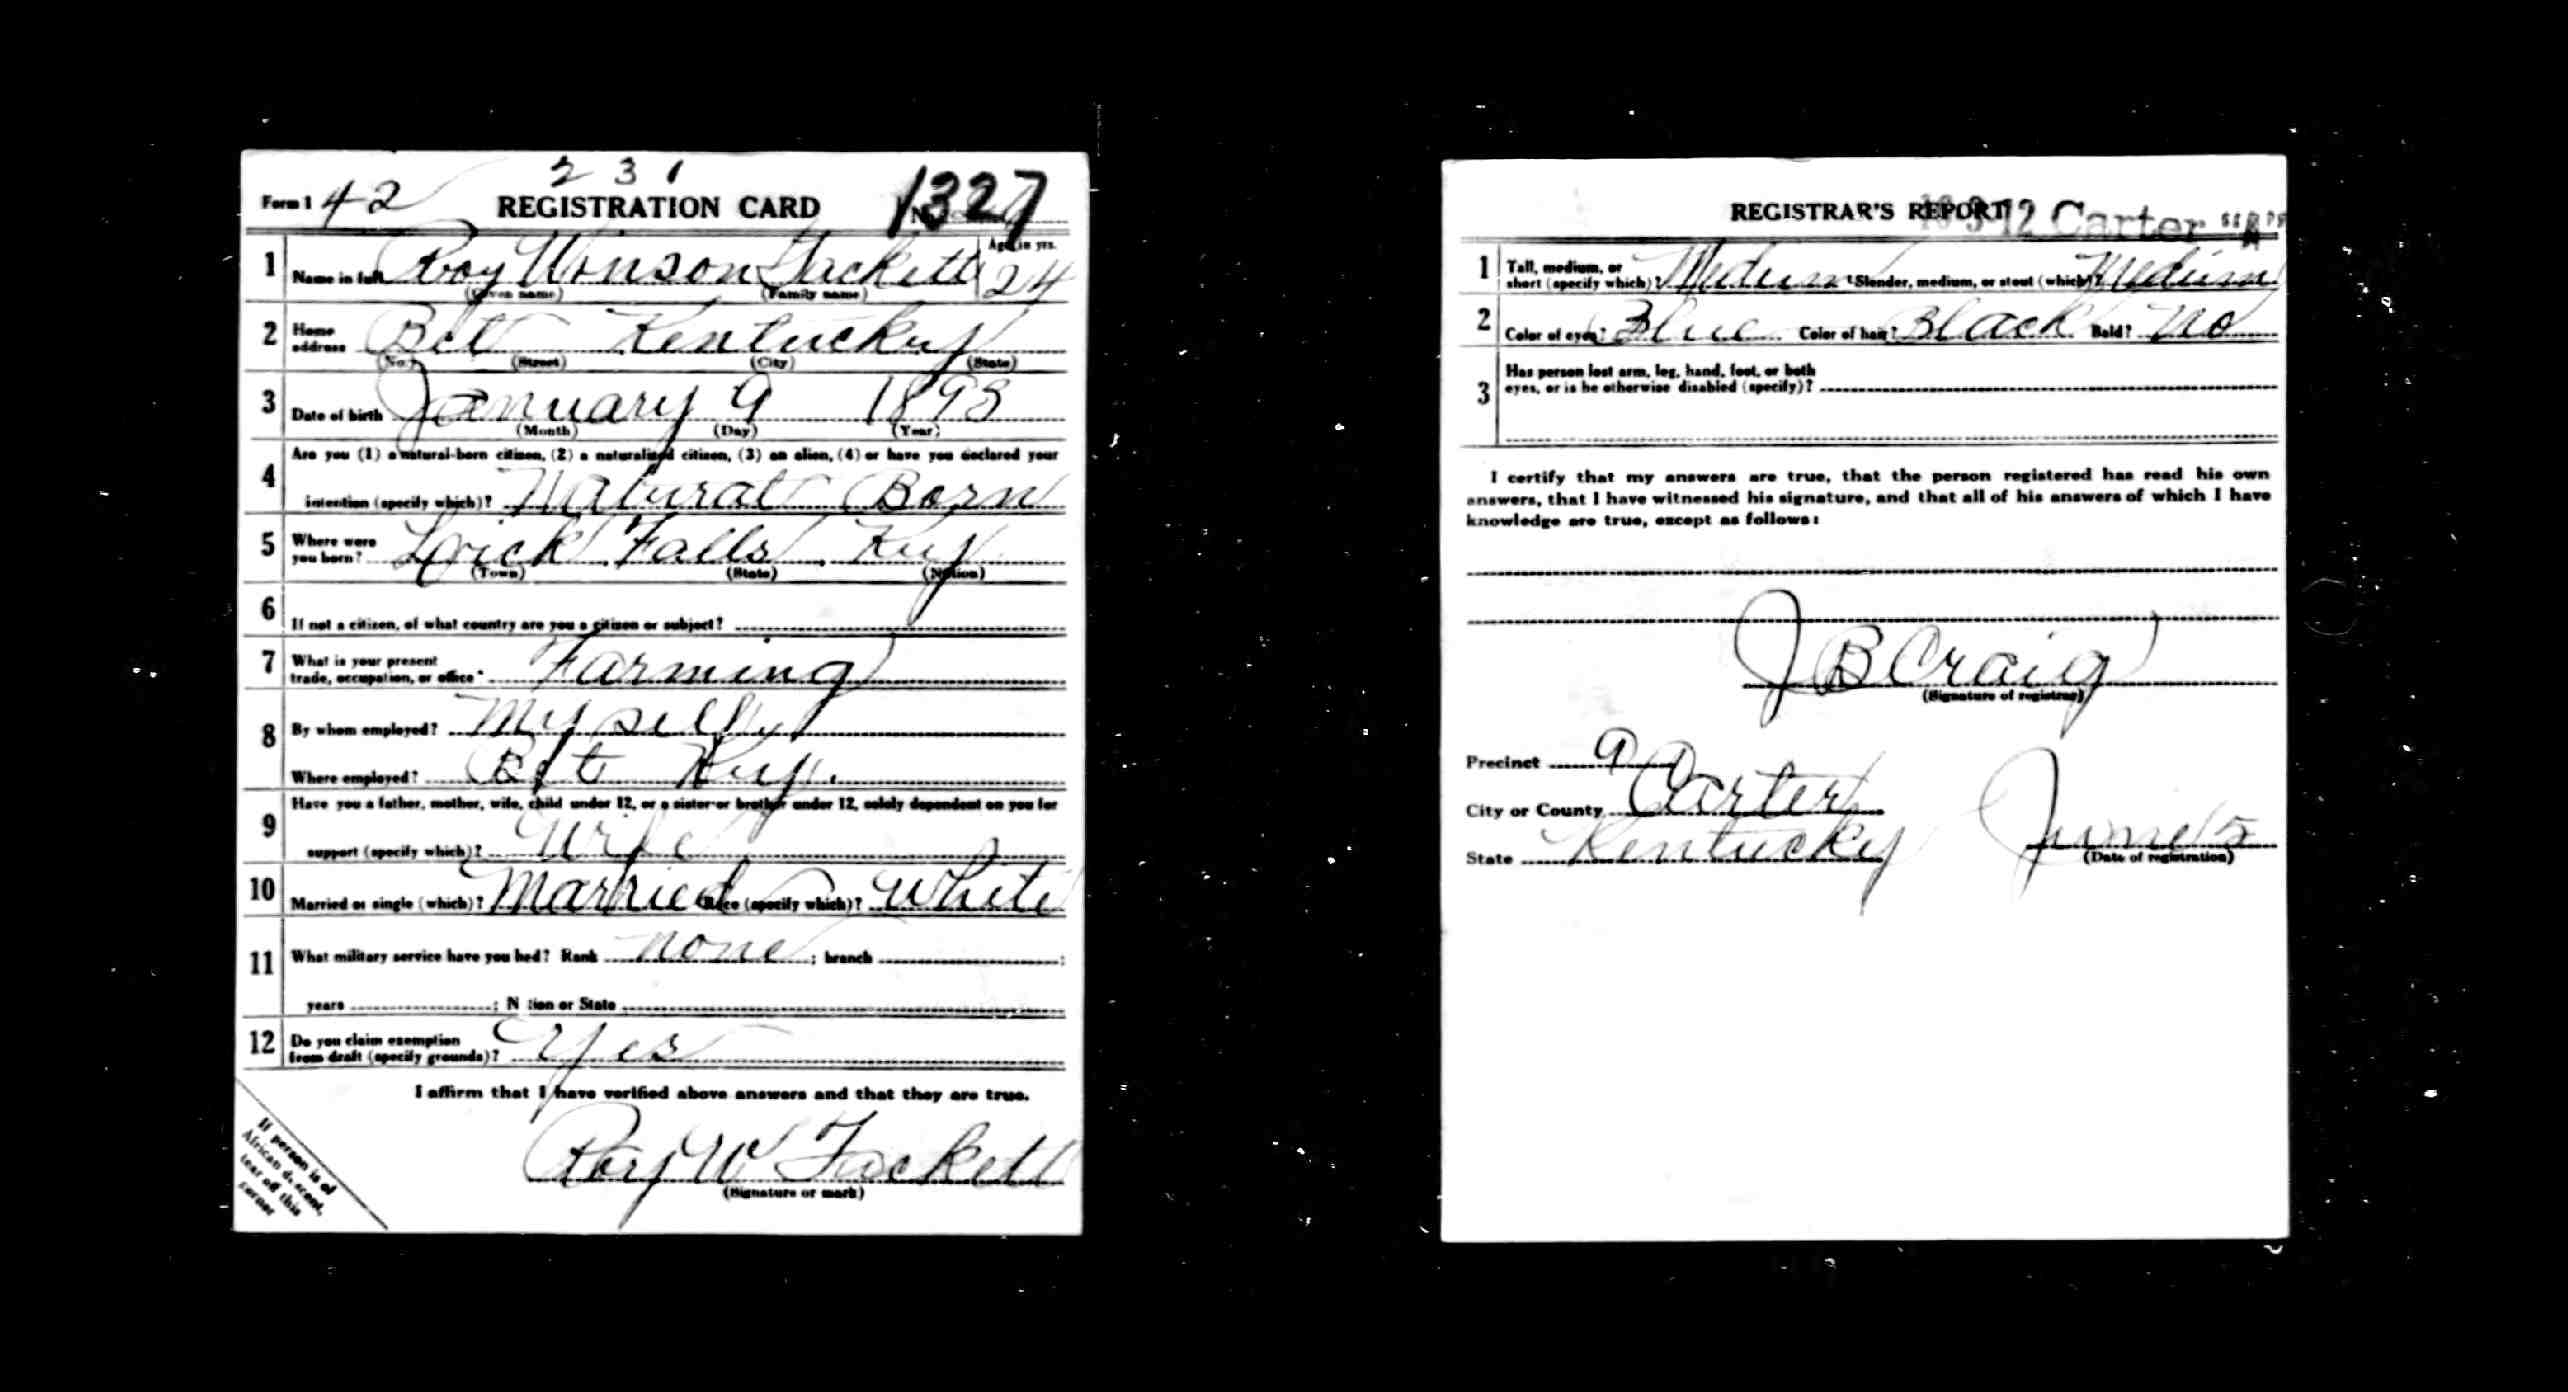 2 3 1
Form 1 42 REGISTRATION CARD No. 1327
1 Name in full Roy Winson Tackett Age in yrs. 24
(Given name) (Family name)
2 Home address Bet Kentucky
(No.) (Street) (City) (State)
3 Date of birth January 9 1893
(Month) (Day) (Year)
4 Are you (1) a natural-born citizen, (2) a naturalized citizen, (3) an alien, (4) or have you declared your
intention (specify which)? Natural Born
5 Where were you born? Lick Falls Ky
(Town) (State) (Nation)
6 If not a citizen, of what country are you a citizen or subject?
7 What is your present trade, occupation, or office? Farming
8 By whom employed? Myself
Where employed? Bet Ky.
9 Have you a father, mother, wife, child under 12, or a sister or brother under 12, solely dependent on you for
support (specify which)? Wife
10 Married or single (which)? Married Race (specify which)? White
11 What military service have you had? Rank none ; branch ;
years ; Nation or State
12 Do you claim exemption from draft (specify grounds)? Yes
I affirm that I have verified above answers and that they are true.
Roy W Tackett
(Signature or mark)
If person is of
African descent,
tear off this
corner
REGISTRAR'S REPORT 16 3 12 Carter
1 Tall, medium, or short (specify which)? Medium Slender, medium, or stout (which)? Medium
2 Color of eyes? Blue Color of hair? Black Bald? No
3 Has person lost arm, leg, hand, foot, or both
eyes, or is he otherwise disabled (specify)?
I certify that my answers are true, that the person registered has read his own
answers, that I have witnessed his signature, and that all of his answers of which I have
knowledge are true, except as follows:
J B Craig
(Signature of registrar)
Precinct 9
City or County Carter
State Kentucky June 5
(Date of registration)